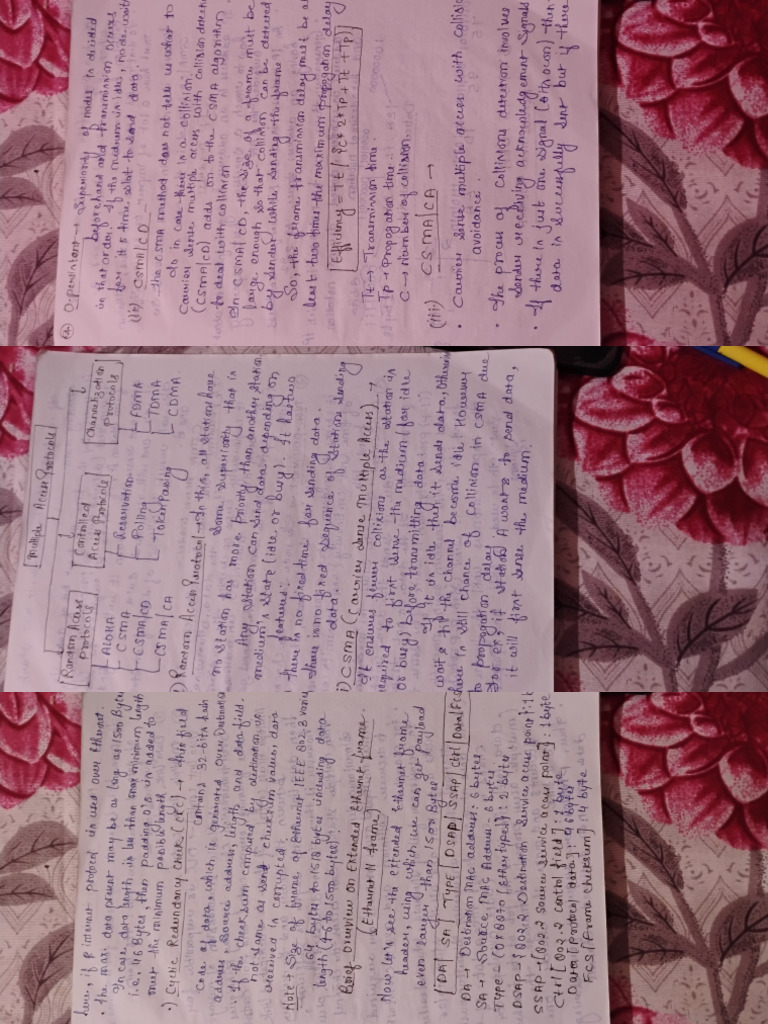 Q. O-persistant → Superiority of nodes is decided
beforehand and transmission occurs
in that order. If the medium is idle, node waits
for its time slot to send data.
(ii) CSMA/CD
The CSMA method does not tell us what to
do in case there is a collision.
Carrier sense multiple access with collision detection
(CSMA/CD) adds on to the CSMA algorithm
to deal with collision
In CSMA/CD, the size of a frame must be
large enough so that collision can be detected
by sender while sending the frame
So, the frame transmission delay must be at
least two times the maximum propagation delay
Efficiency = Tt / (C* 2*Tp + Tt + Tp)
Tt → Transmission time
Tp → Propagation time
C → Number of collision
(iii) CSMA/CA →
• Carrier sense multiple access with collision
avoidance.
• The process of collisions detection involves
sender receiving acknowledgement signals
• If there is just one signal (oth own) then
data is successfully sent but if there
Multiple Access Protocols
Random Access Protocols
Controlled Access Protocols
Channelization Protocols
ALOHA
CSMA
CSMA/CD
CSMA/CA
Reservation
Polling
Token Passing
FDMA
TDMA
CDMA
) Random Access Protocol → In this, all stations have
same superiority that is
no station has more priority than another station
Any station can send data depending on
medium's state (idle or busy). It has two
features:
there is no fixed time for sending data.
There is no fixed sequence of station sending
data.
i) CSMA (Carrier Sense Multiple Access) →
It ensures fewer collisions as the station is
required to first sense the medium (for idle
or busy) before transmitting data.
If it is idle then it sends data, Otherwise
waits till the channel become idle. However
there is still chance of collision in CSMA due
to propagation delay
for ex, if station A wants to send data,
it will first sense the medium.
here, if IP internet protocol is used over Ethernet.
• The max. data present may be as long as 1500 Bytes
In case data length is less than minimum length
i.e., 46 Bytes, then padding 0's is added to
meet the minimum possible length
•) Cyclic Redundancy Check (CRC) → This field
contains 32-bits hash
code of data, which is generated over Destination
address, Source address, length and data field.
If the checksum computed by destination is
not same as send checksum values, data
received is corrupted.
Note → Size of frame of Ethernet IEEE 802.3 vary
64 bytes to 1518 bytes including data
length (46 to 1500 bytes)
Brief overview on Extended Ethernet frame
(Ethernet II frame)
Now let's see the extended Ethernet frame
header, using which we can get Payload
even larger than 1500 bytes
DA | SA | TYPE | DSAP | SSAP | Ctrl | Data | FCS
DA → Destination MAC address: 6 bytes
SA → Source MAC Address: 6 bytes
Type → [0x8870 (Ethertype)]: 2 bytes
DSAP → [802.2 Destination Service access point]: 1 b
SSAP → [802.2 Source Service access point]: 1 byte
Ctrl [802.2 control field]: 1 byte
Data [Protocol data]: > 46 bytes
FCS [Frame checksum]: 4 byte